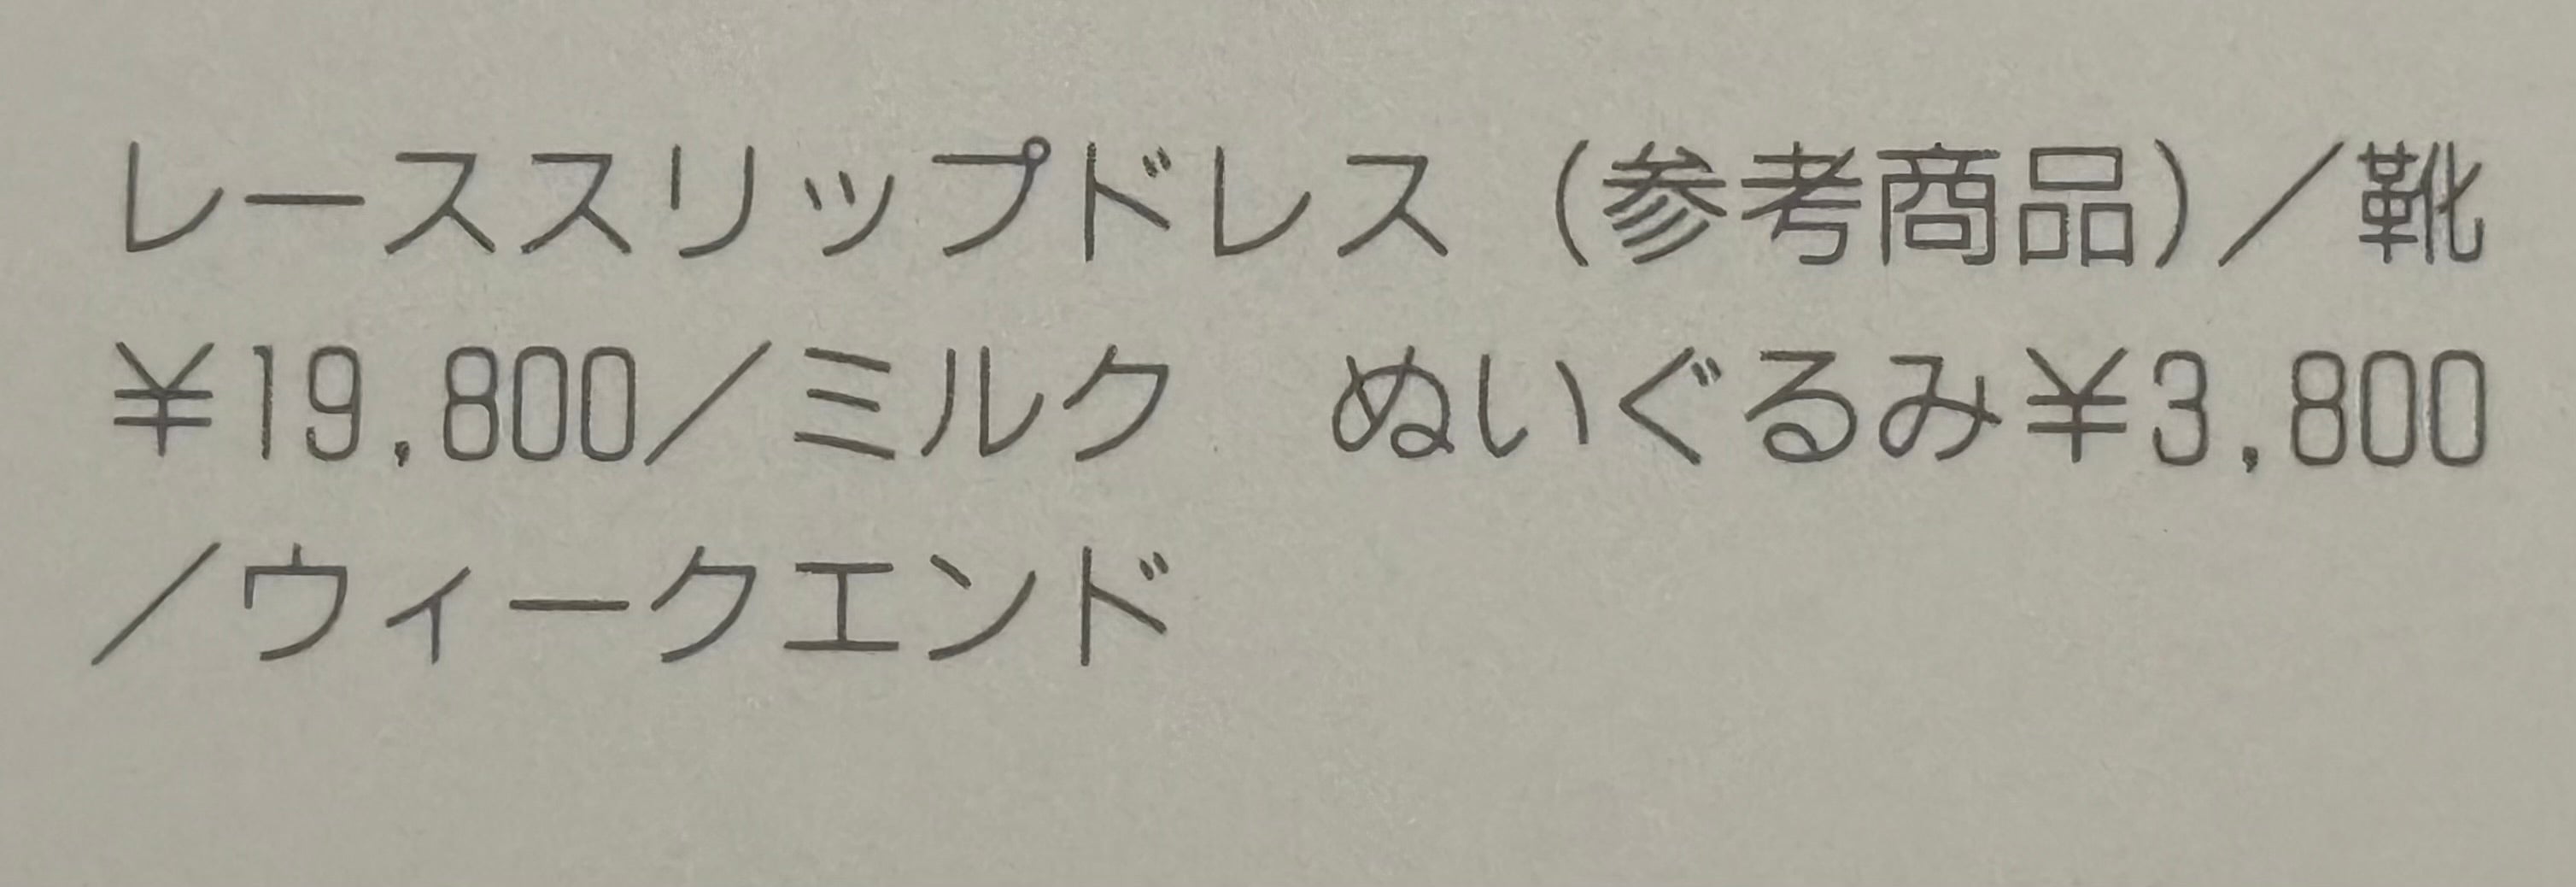 レーススリップドレス（参考商品）／靴
¥19,800／ミルク　ぬいぐるみ¥3,800
／ウィークエンド